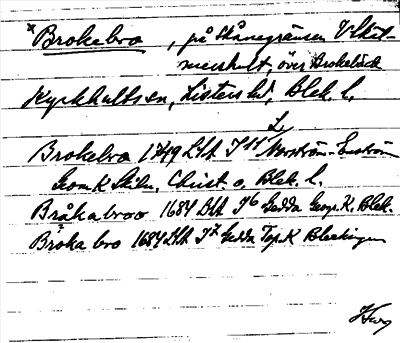 *Brokebro, på Skånegränsen V Skötmershult, över Brokebäck
Kyrkhults sn, Listers hd, Blek. l.
Brokebro 1749 LSA I 11 Norström-Enström
Geom K Skåne, Christ. o, Blek. l.
Bråkabroo 1684 LSA I 6 Gedda Geogr. K. Blek.
Bråka bro 1684 LSA I 7 Gedda Top. K Bleckingen